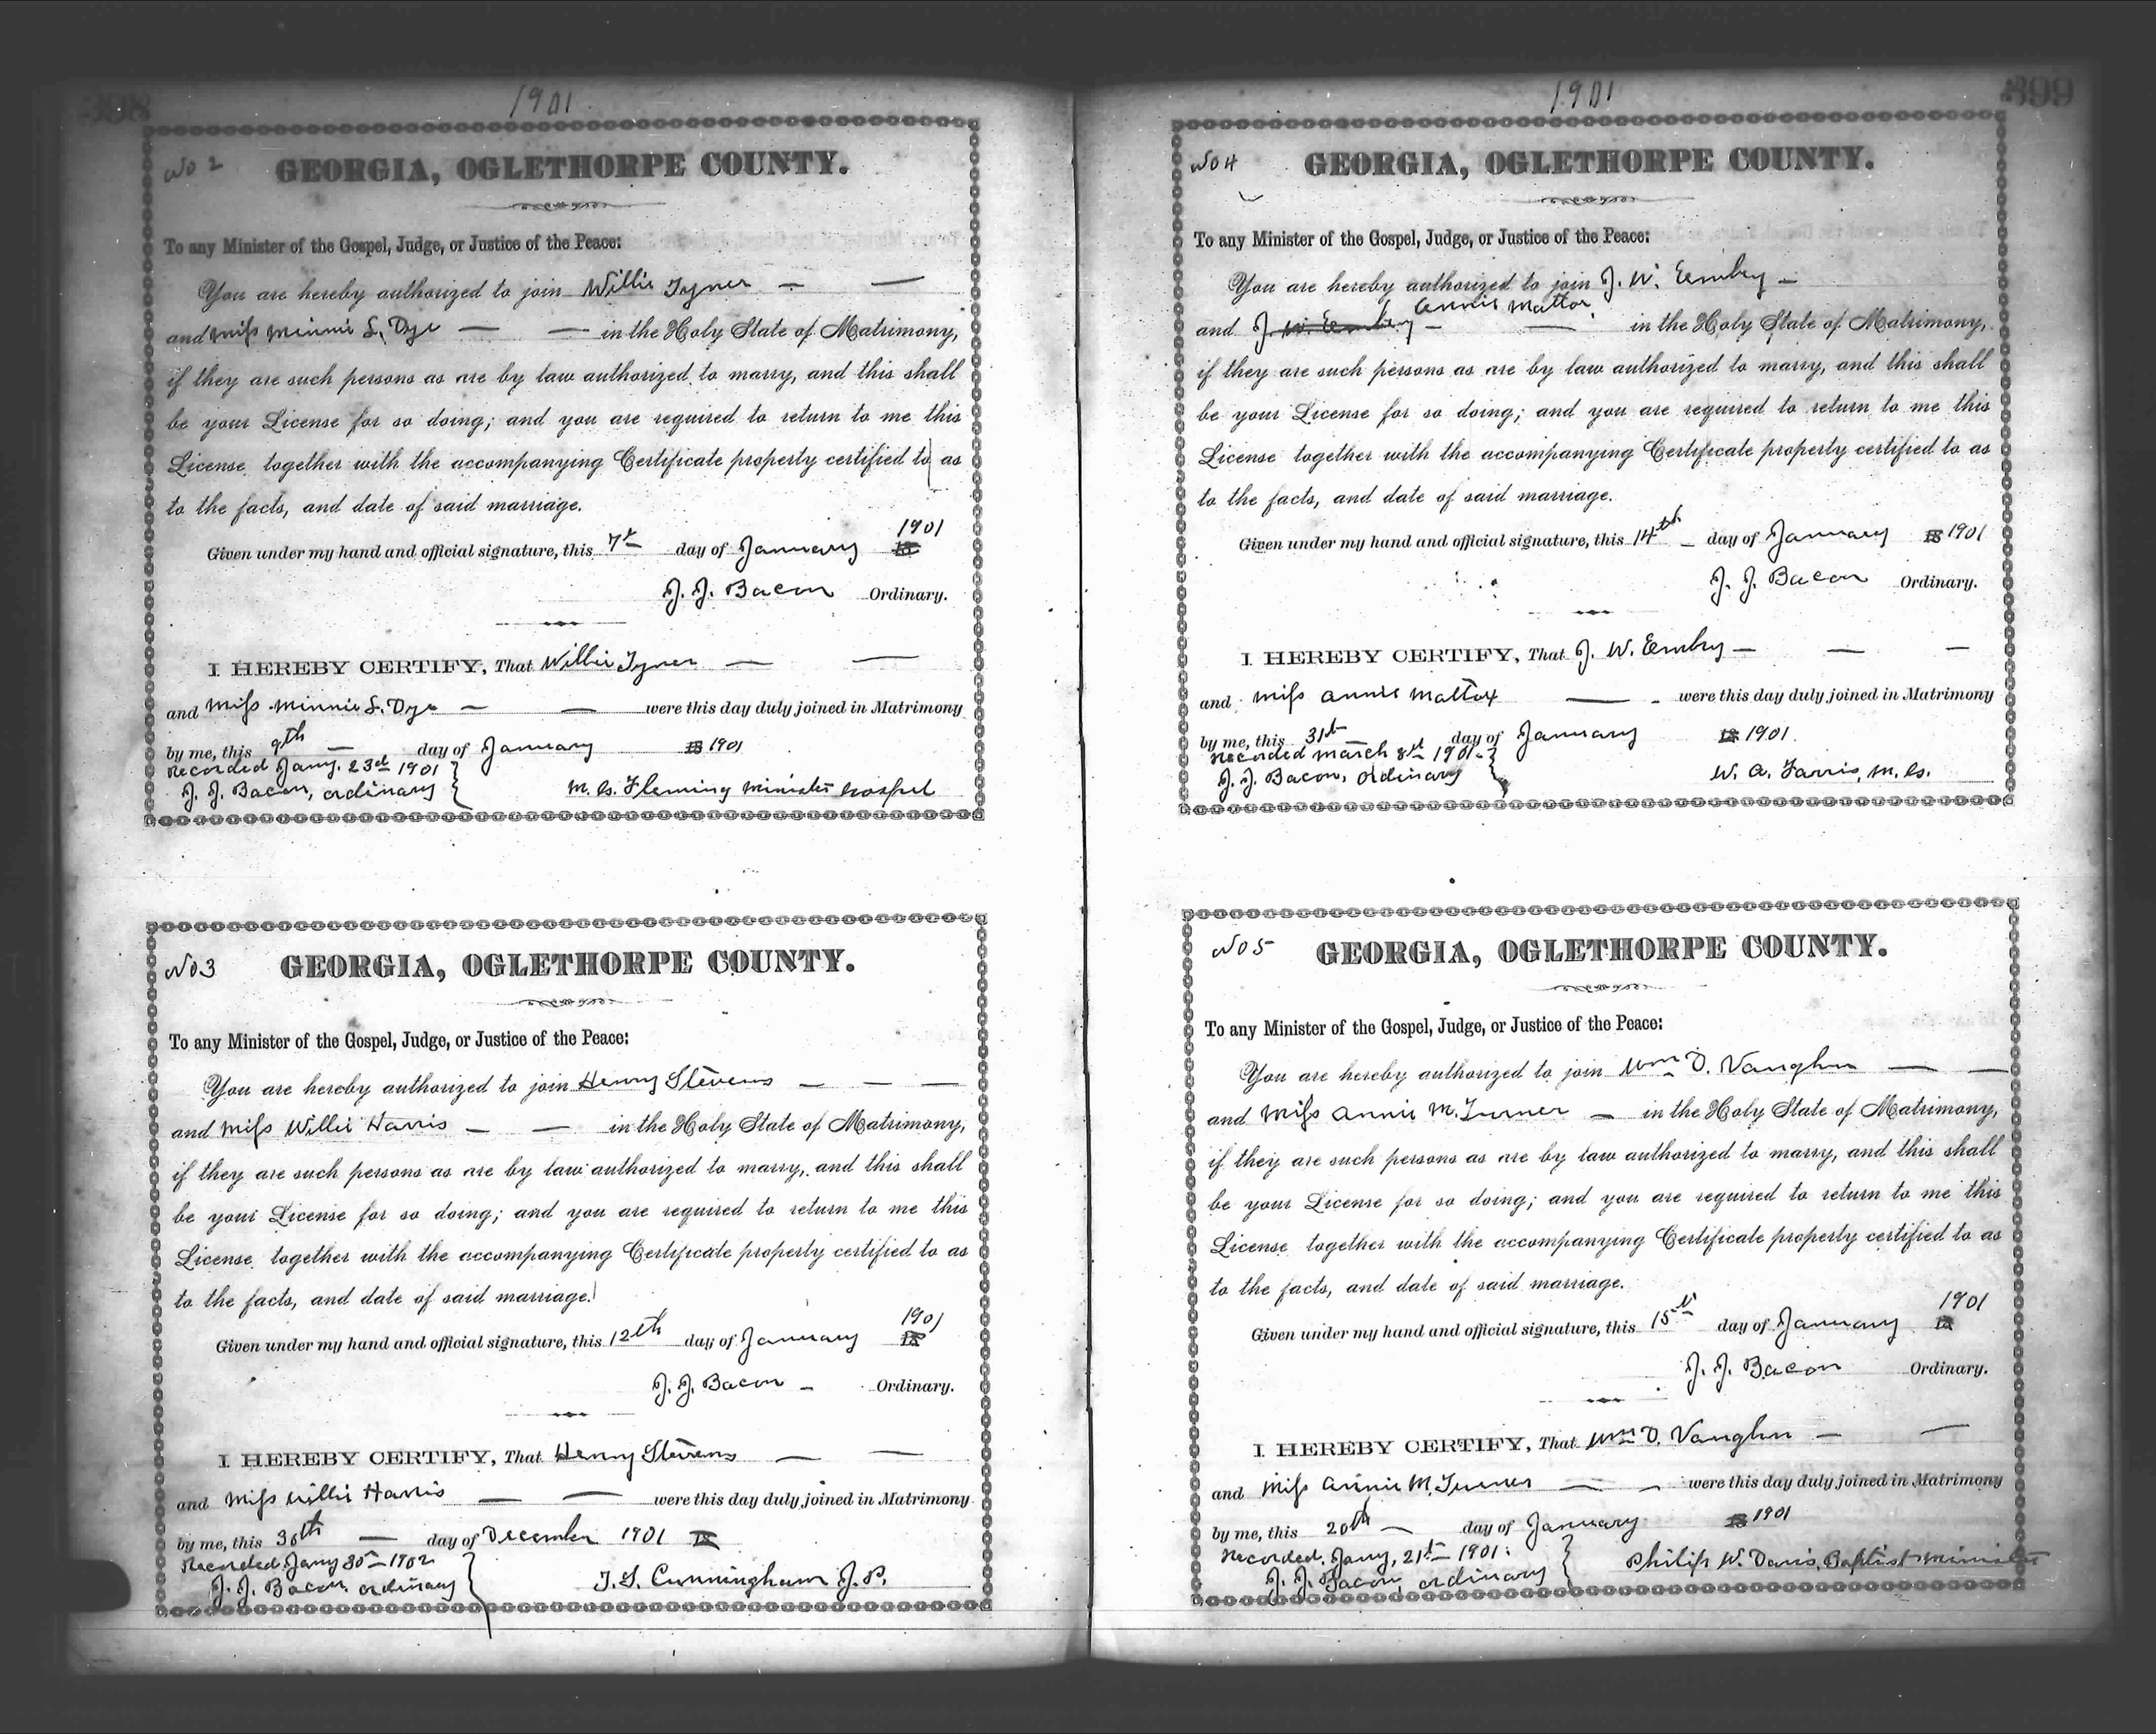 398
1901
No 2
GEORGIA, OGLETHORPE COUNTY.
To any Minister of the Gospel, Judge, or Justice of the Peace:
You are hereby authorized to join Willie Tyner
and Miss Minnie L. Dye in the Holy State of Matrimony,
if they are such persons as are by law authorized to marry, and this shall
be your License for so doing; and you are required to return to me this
License together with the accompanying Certificate property certified to as
to the facts, and date of said marriage.
Given under my hand and official signature, this 7th day of January 18 1901
J. J. Bacon Ordinary.
I HEREBY CERTIFY, That Willie Tyner
and Miss Minnie L. Dye were this day duly joined in Matrimony
by me, this 9th day of January 18 1901
Recorded Jany. 23rd 1901
J. J. Bacon, ordinary
M. B. Fleming Minister Gospel
No 3
GEORGIA, OGLETHORPE COUNTY.
To any Minister of the Gospel, Judge, or Justice of the Peace:
You are hereby authorized to join Henry Stevens
and Miss Willie Harris in the Holy State of Matrimony,
if they are such persons as are by law authorized to marry, and this shall
be your License for so doing; and you are required to return to me this
License together with the accompanying Certificate property certified to as
to the facts, and date of said marriage.
Given under my hand and official signature, this 12th day of January 18 1901
J. J. Bacon Ordinary.
I HEREBY CERTIFY, That Henry Stevens
and Miss Willie Harris were this day duly joined in Matrimony
by me, this 30th day of December 1901 18
Recorded Jany 30th 1902
J. J. Bacon, ordinary
T. S. Cunningham J. P.
399
1901
No 4
GEORGIA, OGLETHORPE COUNTY.
To any Minister of the Gospel, Judge, or Justice of the Peace:
You are hereby authorized to join J. W. Embry
Annie Mattox
and J. W. Embry in the Holy State of Matrimony,
if they are such persons as are by law authorized to marry, and this shall
be your License for so doing; and you are required to return to me this
License together with the accompanying Certificate property certified to as
to the facts, and date of said marriage.
Given under my hand and official signature, this 14th day of January 18 1901
J. J. Bacon Ordinary.
I HEREBY CERTIFY, That J. W. Embry
and Miss Annie Mattox were this day duly joined in Matrimony
by me, this 31st day of January 18 1901.
Recorded March 8th 1901.
J. J. Bacon, ordinary
W. A. Farris, M. G.
No 5
GEORGIA, OGLETHORPE COUNTY.
To any Minister of the Gospel, Judge, or Justice of the Peace:
You are hereby authorized to join Wm D. Vaughn
and Miss Annie M. Turner in the Holy State of Matrimony,
if they are such persons as are by law authorized to marry, and this shall
be your License for so doing; and you are required to return to me this
License together with the accompanying Certificate property certified to as
to the facts, and date of said marriage.
Given under my hand and official signature, this 15th day of January 18 1901
J. J. Bacon Ordinary.
I HEREBY CERTIFY, That Wm D. Vaughn
and Miss Annie M. Turner were this day duly joined in Matrimony
by me, this 20th day of January 18 1901
Recorded, Jany, 21st 1901.
J. J. Bacon, ordinary
Philip W. Davis, Baptist Minister